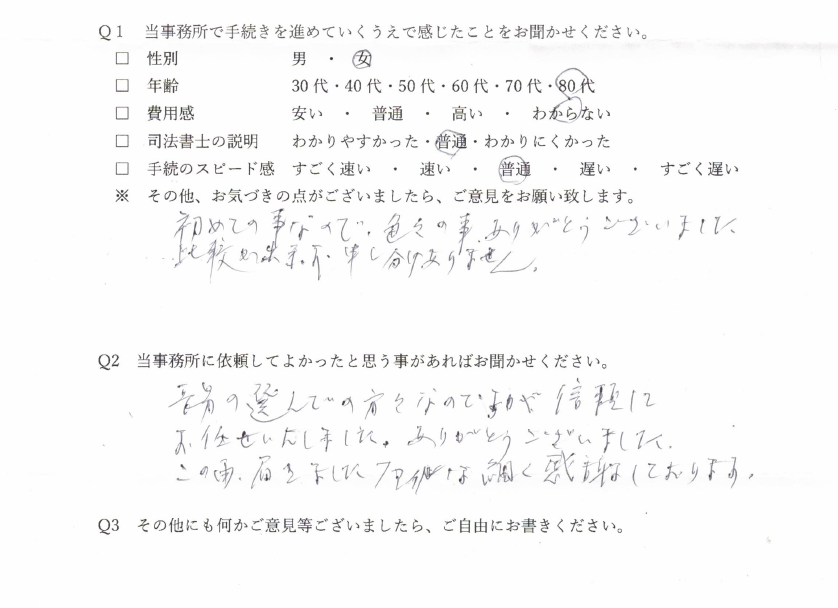 Q1 当事務所で手続きを進めていくうえで感じたことをお聞かせください。
□ 性別 男 ・ 女
□ 年齢 30代・40代・50代・60代・70代・80代
□ 費用感 安い ・ 普通 ・ 高い ・ わからない
□ 司法書士の説明 わかりやすかった・普通・わかりにくかった
□ 手続のスピード感 すごく速い ・ 速い ・ 普通 ・ 遅い ・ すごく遅い
※ その他、お気づきの点がございましたら、ご意見をお願い致します。
初めての事なので、色々の事ありがとうございました。
比較が出来ず、申し分けありません。
Q2 当事務所に依頼してよかったと思う事があればお聞かせください。
長男の選んでの方々なので 信頼して
お任せいたしました。ありがとうございました。
この両、届きました 細く感謝しております。
Q3 その他にも何かご意見等ございましたら、ご自由にお書きください。